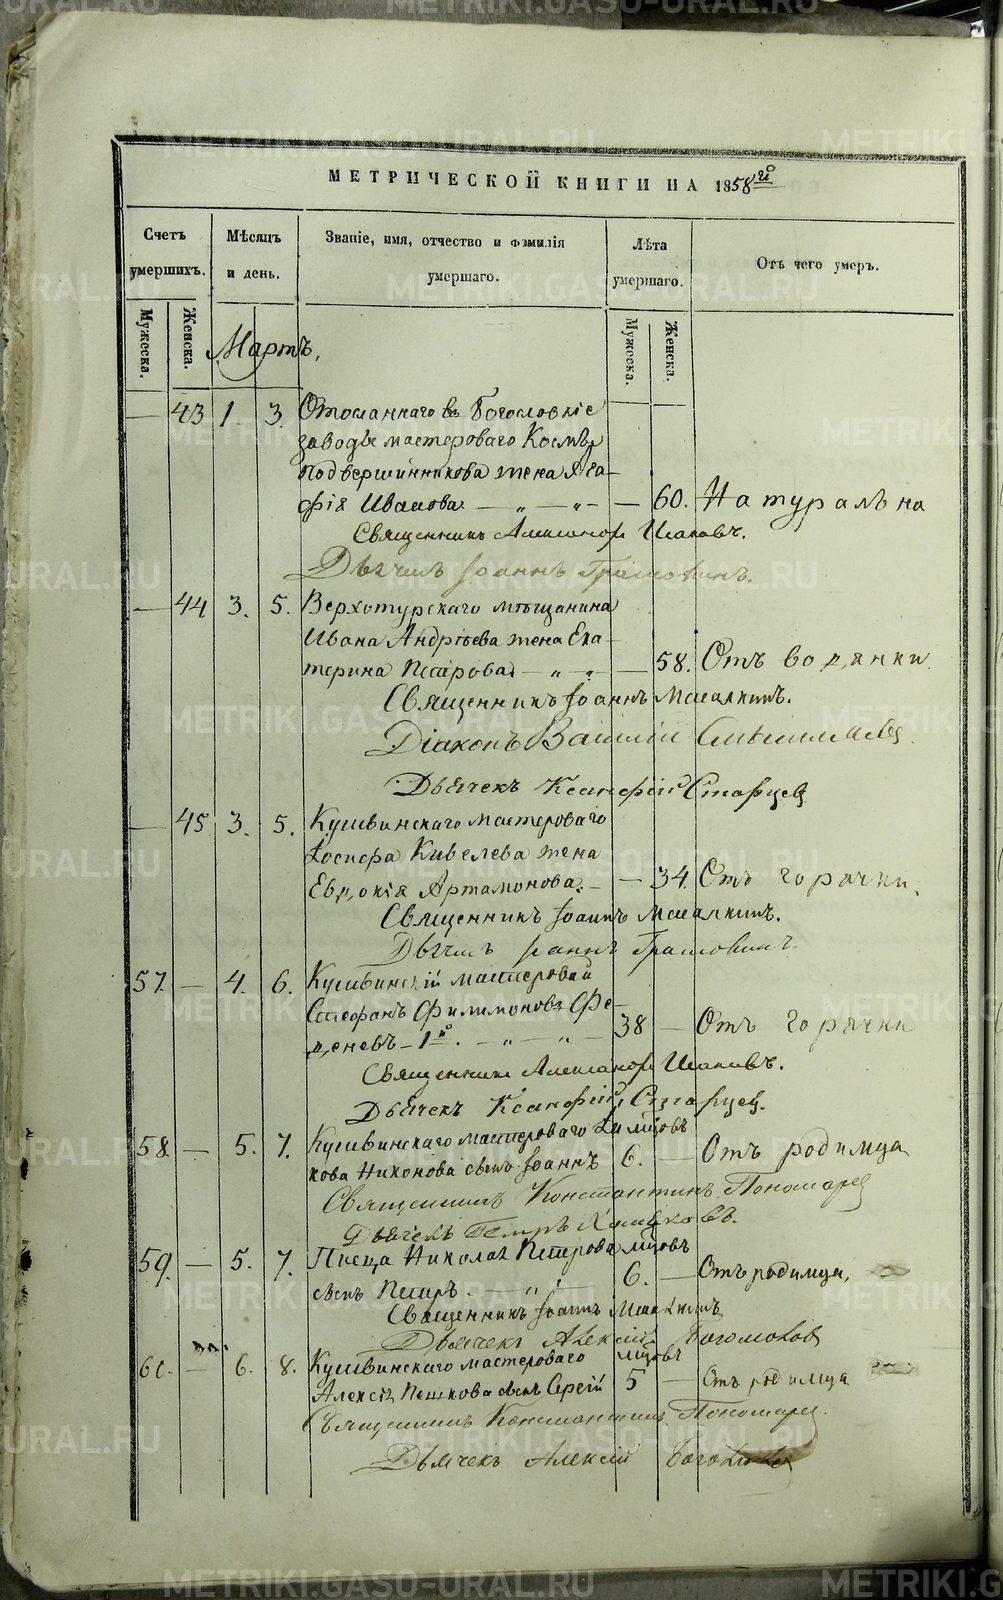 METRIKI.GASO-URAL.RU
МЕТРИЧЕСКОЙ КНИГИ НА 1858й
Счетъ умершихъ.
Мѣсяцъ и день.
Званіе, имя, отчество и фамилія умершаго.
Лѣта умершаго.
Отъ чего умеръ.
Мужеска. Женска.
Мужеска. Женска.
Мартъ,
— 43 1 3. Отосланнаго въ Богословскіе
заводы мастероваго Космы
Подвершинникова жена Ага-
фія Иванова — „ — „ — — 60. Натурально
Священникъ Александръ
Дьячекъ Іоаннъ
— 44 3. 5. Верхотурскаго мѣщанина
Ивана Андрѣева жена Ека-
терина Петрова — „ — „ — 58. Отъ водянки.
Священникъ Іоаннъ
Діаконъ Василій
Дьячекъ Ксенофонтъ Старцевъ
— 45 3. 5. Кушвинскаго мастероваго
Іосифа Кивелева жена
Евдокія Артамонова. — — 34. Отъ горячки.
Священникъ Іоаннъ
Дьячекъ Іоаннъ
57. — 4. 6. Кушвинскій мастеровой
Стефанъ Филимоновъ Фе-
деневъ — 1й. — „ — „ — 38 — Отъ горячки
Священникъ Александръ
Дьячекъ Ксенофонтъ Старцевъ.
58 — 5. 7. Кушвинскаго мастероваго мцовъ
кова Никонова сынъ Іоаннъ 6. — Отъ родимца
Священникъ Константинъ Пономаревъ
Дьячекъ Петръ
59. — 5. 7. Писца Николая Петрова мцовъ
сынъ Петръ. — „ — 6. — Отъ родимца,
Священникъ Іоаннъ
Дьячекъ Алексій Богомоловъ
60. — 6. 8. Кушвинскаго мастероваго мцовъ
Алексія Пешкова сынъ Сергій 5 — Отъ родимца
Священникъ Константинъ Пономаревъ
Дьячекъ Алексій Богомоловъ
METRIKI.GASO-URAL.RU